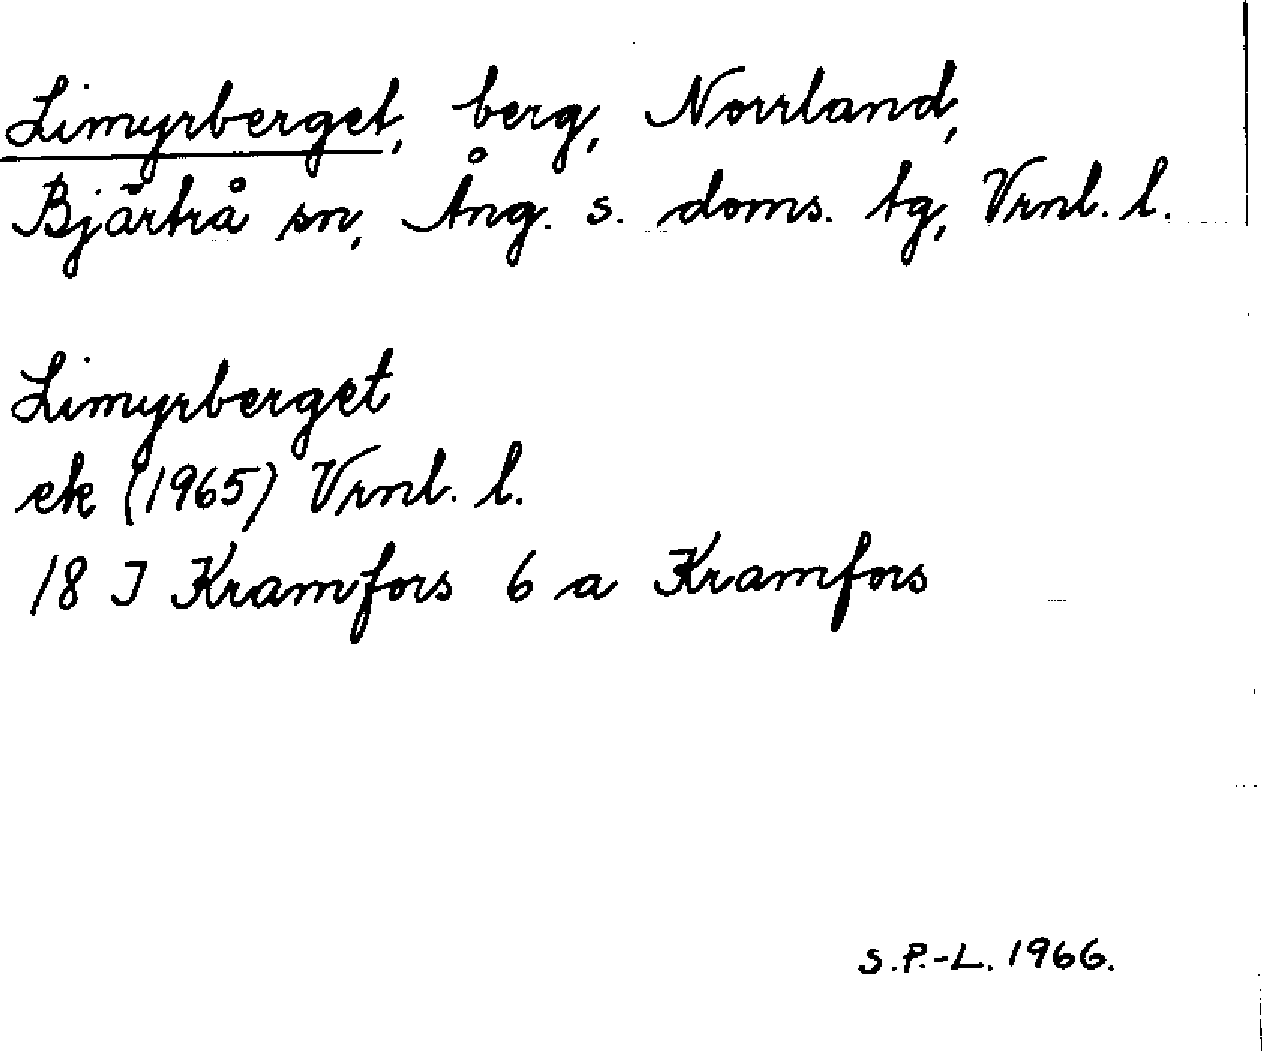 Limyrberget, berg, Norrland,
Bjärtrå sn, Ång. s. doms. tg, Vrnl. l.
Limyrberget
ek (1965) Vrnl. l.
18 I Kramfors 6 a Kramfors
S.P.-L. 1966.